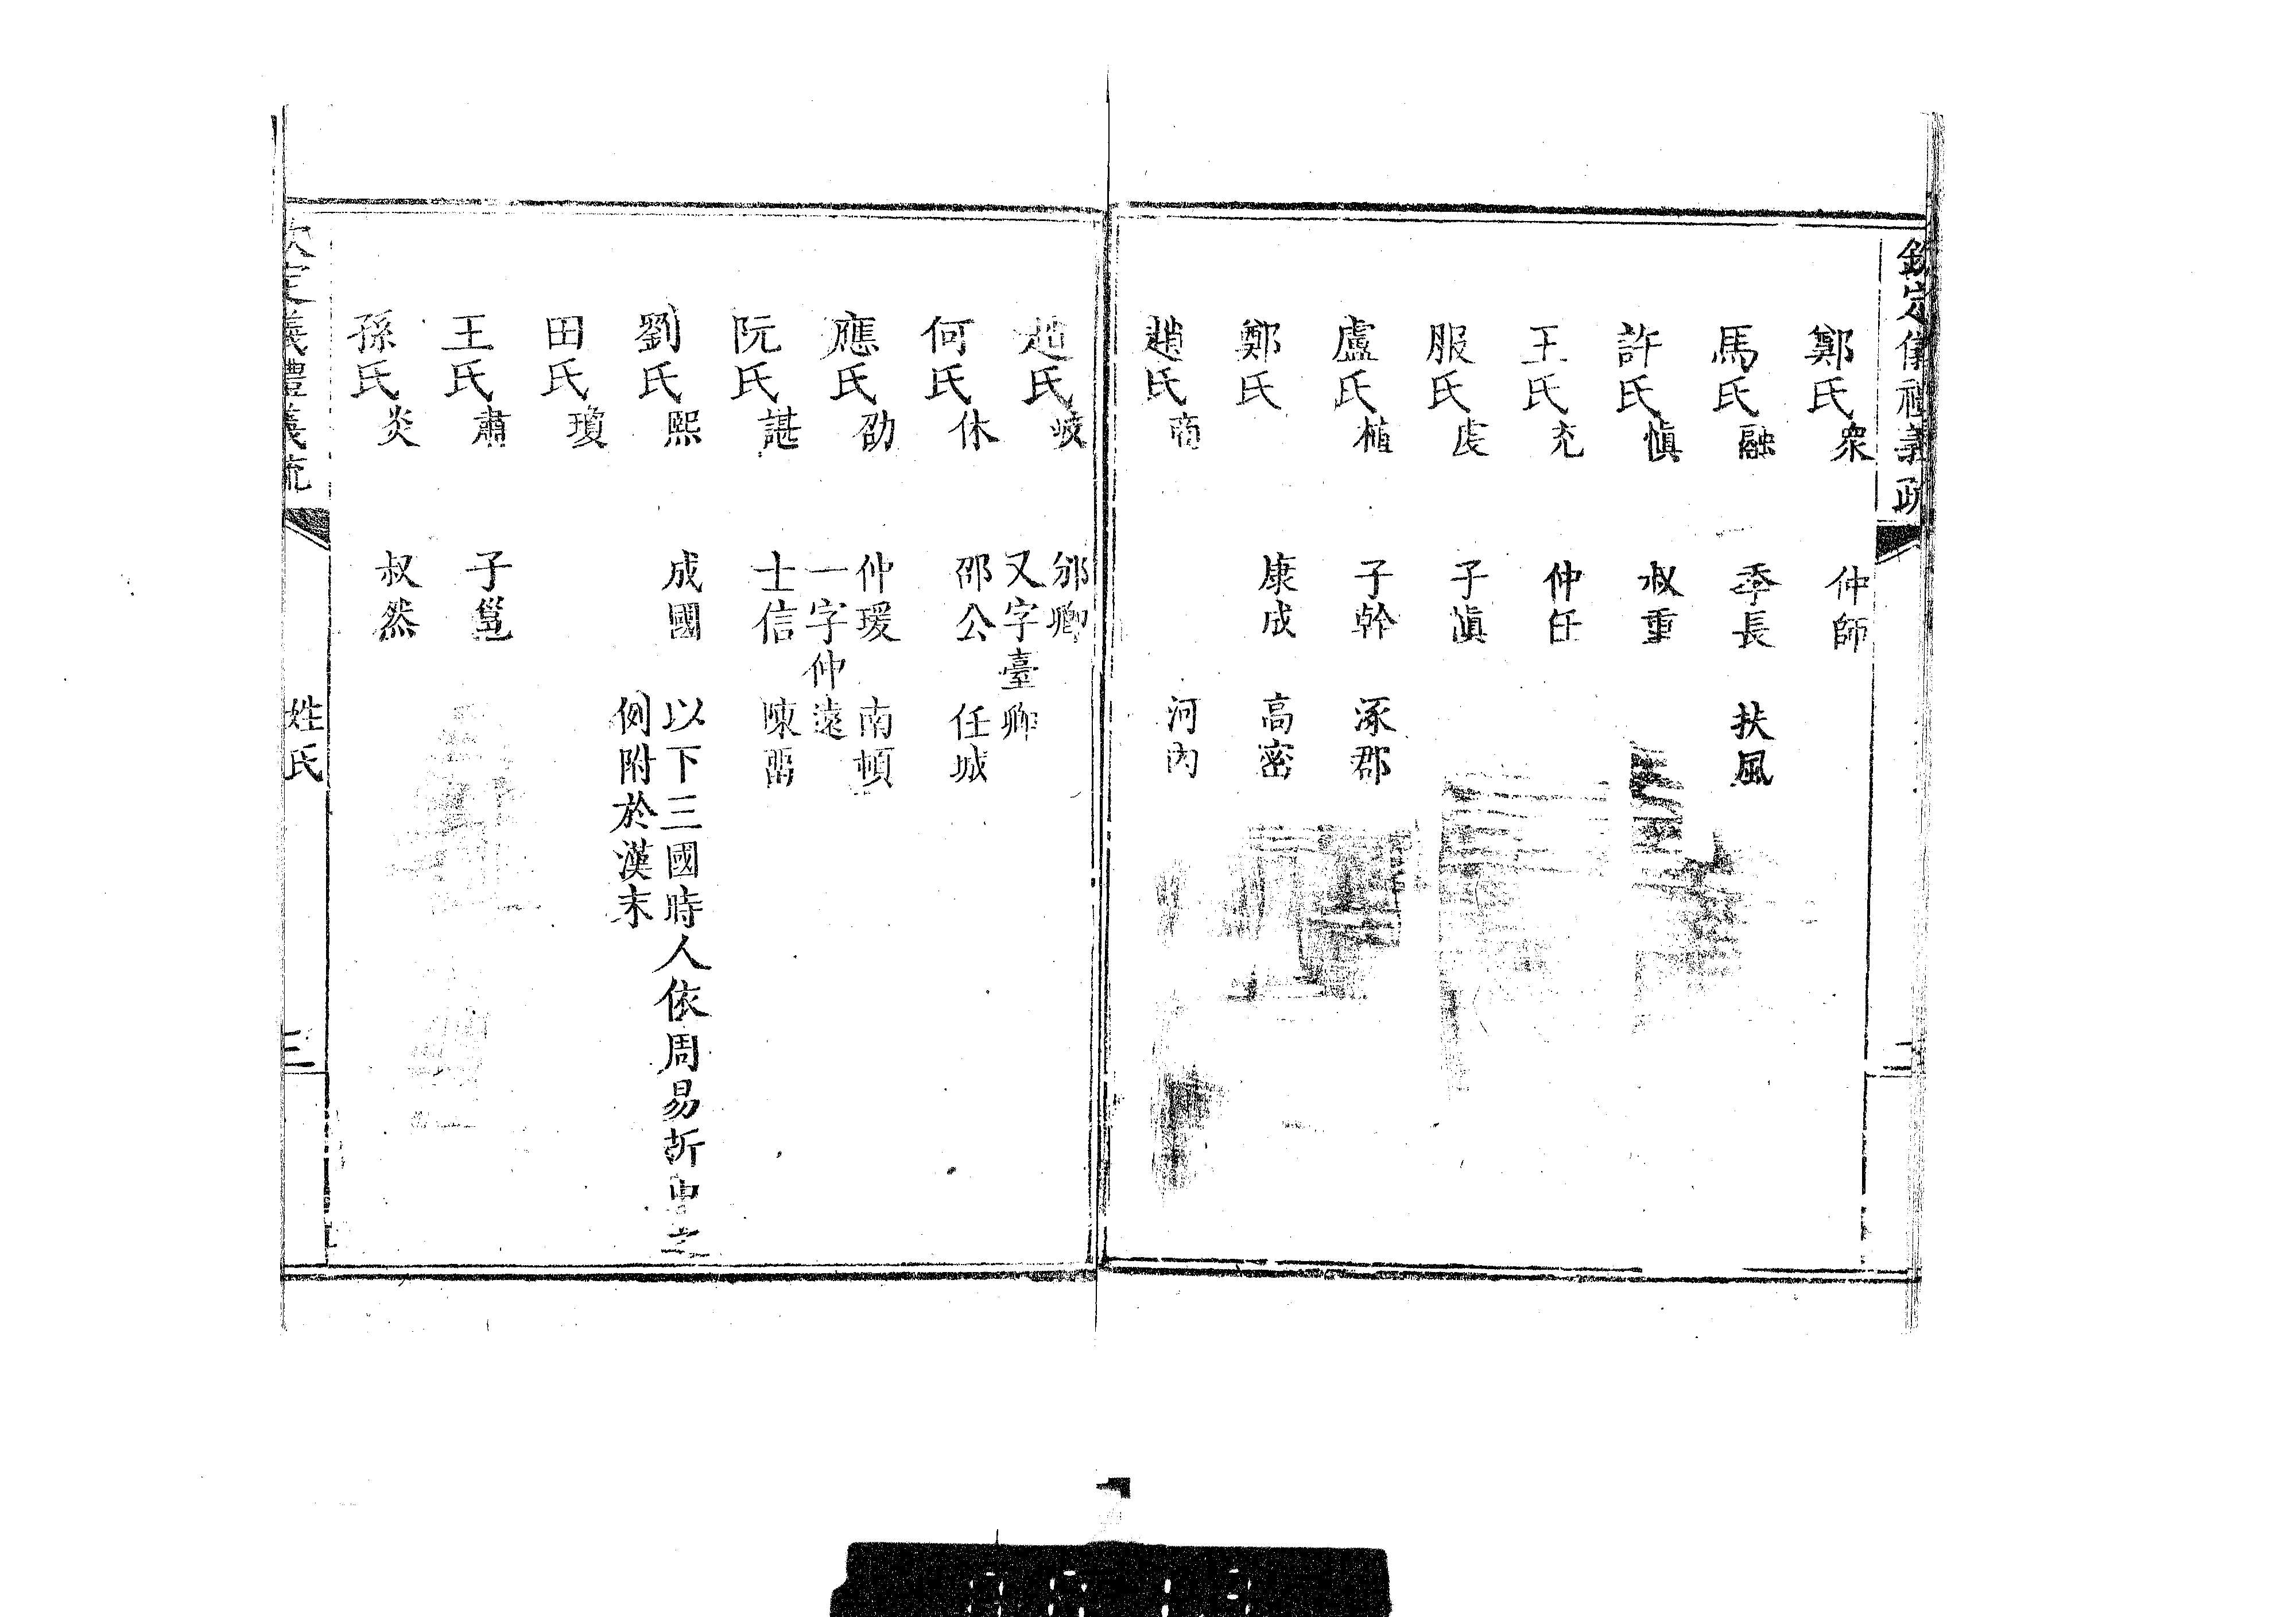 欽定儀禮義疏 二
鄭氏衆 仲師
馬氏融 季長 扶風
許氏慎 叔重
王氏充 仲任
服氏虔 子慎
盧氏植 子幹 涿郡
鄭氏 康成 高密
趙氏商 河內
趙氏岐 邠卿
又字臺卿
何氏休 邵公 任城
應氏劭 仲瑗 南頓
一字仲遠
阮氏諶 士信 陳留
劉氏熙 成國 以下三國時人依周易折中之
例附於漢末
田氏瓊
王氏肅 子邕
孫氏炎 叔然
欽定儀禮義疏 姓氏 三